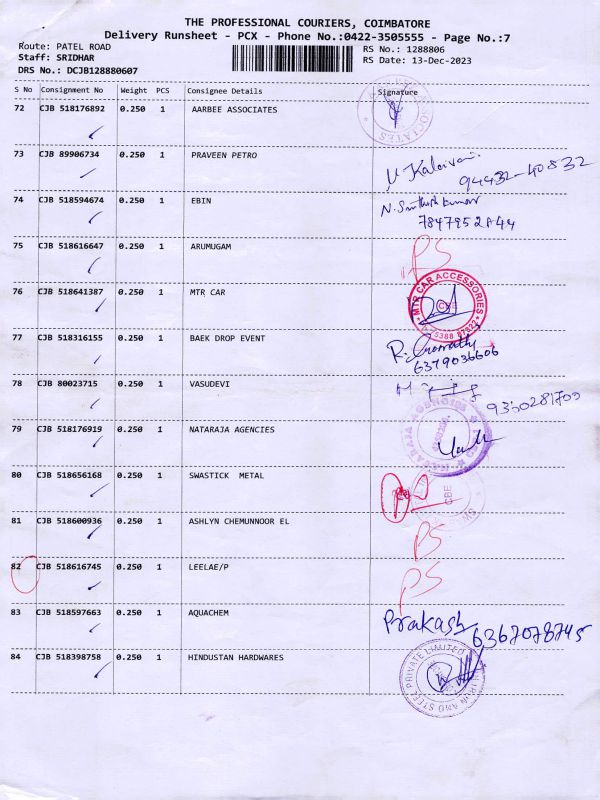 THE PROFESSIONAL COURIERS, COIMBATORE
Delivery Runsheet - PCX - Phone No.:0422-3505555 - Page No.:7
Route: PATEL ROAD RS No.: 1288806
Staff: SRIDHAR RS Date: 13-Dec-2023
DRS No.: DCJB128880607
S No Consignment No Weight PCS Consignee Details Signature
72 CJB 518176892 0.250 1 AARBEE ASSOCIATES
73 CJB 89906734 0.250 1 PRAVEEN PETRO
94432-40832
74 CJB 518594674 0.250 1 EBIN
75 CJB 518616647 0.250 1 ARUMUGAM PS
76 CJB 518641387 0.250 1 MTR CAR MTR CAR ACCESSORIES
77 CJB 518316155 0.250 1 BAEK DROP EVENT
6379036606
78 CJB 80023715 0.250 1 VASUDEVI
79 CJB 518176919 0.250 1 NATARAJA AGENCIES NATARAJA AGENCIES
80 CJB 518656168 0.250 1 SWASTICK METAL CBE
81 CJB 518600936 0.250 1 ASHLYN CHEMUNNOOR EL PS
82 CJB 518616745 0.250 1 LEELAE/P PS
83 CJB 518597663 0.250 1 AQUACHEM Prakash 6367078745
84 CJB 518398758 0.250 1 HINDUSTAN HARDWARES AND STEEL PRIVATE LIMITED